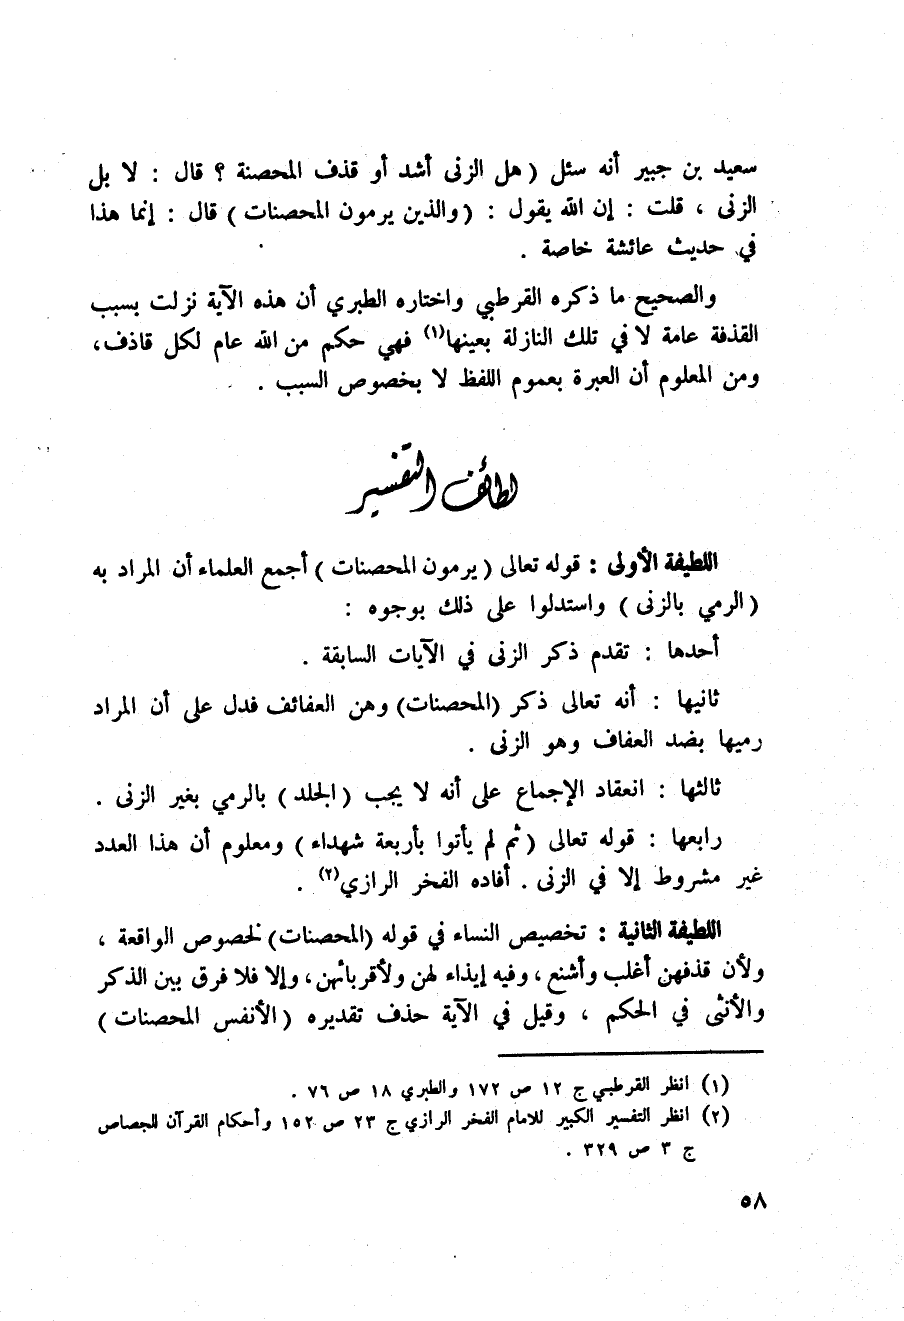 سعيد بن جبير أنه سئل ( هل الزنى أشد أو قذف المحصنة ؟ قال : لا بل
الزنى ، قلت : إن الله يقول : ( والذين يرمون المحصنات ) قال : إنما هذا
في حديث عائشة خاصة .
والصحيح ما ذكره القرطبي واختاره الطبري أن هذه الآية نزلت بسبب
القذفة عامة لا في تلك النازلة بعينها(١) فهي حكم من الله عام لكل قاذف،
ومن المعلوم أن العبرة بعموم اللفظ لا بخصوص السبب .
لطائف التفسير
اللطيفة الأولى : قوله تعالى ( يرمون المحصنات ) أجمع العلماء أن المراد به
( الرمي بالزنى ) واستدلوا على ذلك بوجوه :
أحدها : تقدم ذكر الزنى في الآيات السابقة .
ثانيها : أنه تعالى ذكر (المحصنات) وهن العفائف فدل على أن المراد
رميها بضد العفاف وهو الزنى .
ثالثها : انعقاد الإجماع على أنه لا يجب ( الجلد ) بالرمي بغير الزنى .
رابعها : قوله تعالى ( ثم لم يأتوا بأربعة شهداء ) ومعلوم أن هذا العدد
غير مشروط إلا في الزنى . أفاده الفخر الرازي(٢) .
اللطيفة الثانية : تخصيص النساء في قوله (المحصنات) لخصوص الواقعة ،
ولأن قذفهن أغلب وأشنع ، وفيه إيذاء لهن ولأقربائهن، وإلا فلا فرق بين الذكر
والأنثى في الحكم ، وقيل في الآية حذف تقديره ( الأنفس المحصنات )
(١) انظر القرطبي ج ١٢ ص ١٧٢ والطبري ١٨ ص ٧٦ .
(٢) انظر التفسير الكبير للامام الفخر الرازي ج ٢٣ ص ١٥٢ وأحكام القرآن للجصاص
ج ٣ ص ٣٢٩ .
٥٨